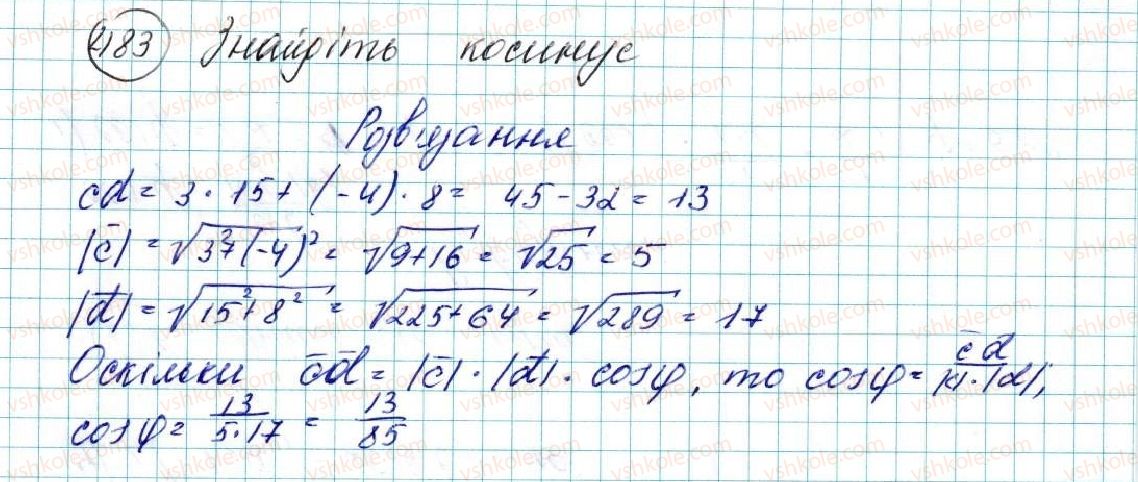 483 Знайдіть косинус
Розв'язання
c̄d̄ = 3 · 15 + (-4) · 8 = 45 - 32 = 13
|c̄| = √(3² + (-4)²) = √(9+16) = √25 = 5
|d̄| = √(15² + 8²) = √(225+64) = √289 = 17
Оскільки c̄d̄ = |c̄| · |d̄| · cosφ, то cosφ = c̄d̄ / |c̄| · |d̄|;
cosφ = 13 / 5·17 = 13 / 85
vshkole.com